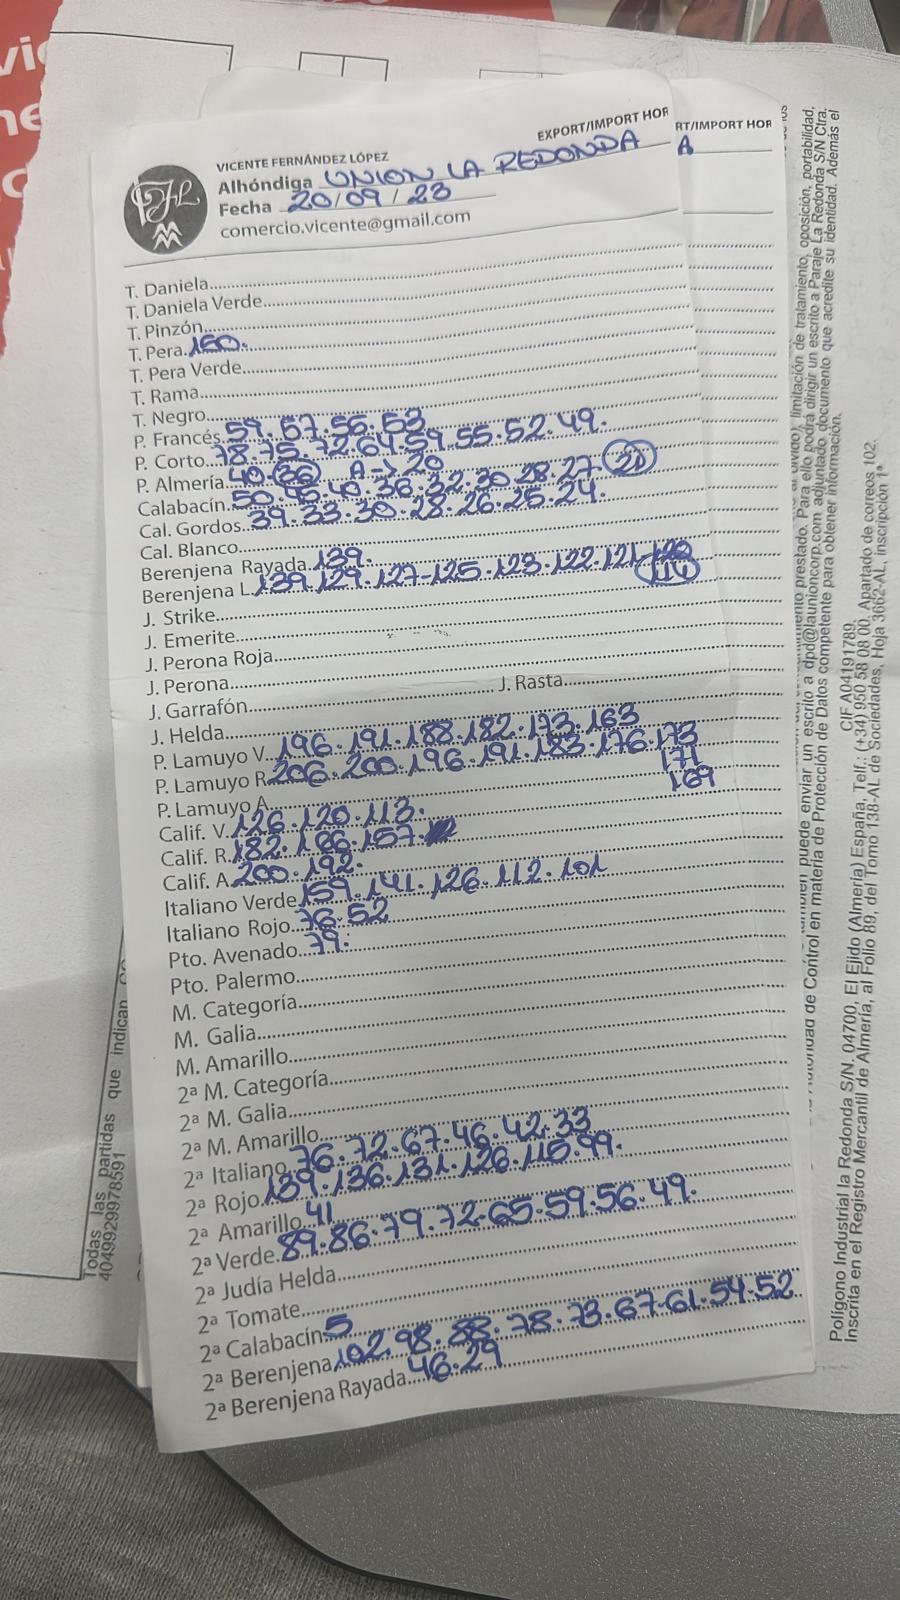 EXPORT/IMPORT HOR
RT/IMPORT HOR
VICENTE FERNÁNDEZ LÓPEZ
Alhóndiga UNION LA REDONDA
A
Fecha 20/09/23
comercio.vicente@gmail.com
T. Daniela
T. Daniela Verde
T. Pinzón
T. Pera 150.
T. Pera Verde
T. Rama
T. Negro
P. Francés 59.57.56.53
P. Corto 78.75.72.64.59.55.52.49.
P. Almería 40 (36) A→20
Calabacín 50.45.40.36.32.30.28.27.
Cal. Gordos 39.33.30.28.26.25.24.
Cal. Blanco
Berenjena Rayada 139.
Berenjena L 139.129.127-125.123.122.121.120
(114)
J. Strike
J. Emerite
J. Perona Roja
J. Perona
J. Garrafón J. Rasta
J. Helda
P. Lamuyo V. 196.191.188.182.173.163
P. Lamuyo R 206.200.196.191.183.176.173
171
169
P. Lamuyo A
Calif. V. 126.120.113.
Calif. R. 182.166.157
Calif. A 200.192.
Italiano Verde 159.141.126.112.101
Italiano Rojo 76.52
Pto. Avenado 79.
Pto. Palermo
M. Categoría
M. Galia
M. Amarillo
2ª M. Categoría
2ª M. Galia
2ª M. Amarillo
2ª Italiano 76.72.67.46.42.33
2ª Rojo 139.136.131.126.115.99.
2ª Amarillo 41
2ª Verde 89.86.79.72-65.59.56.49.
2ª Judía Helda
2ª Tomate
2ª Calabacín 5
2ª Berenjena 102.98.88.78.73.67-61.54.52
2ª Berenjena Rayada 46.29
Todas las partidas que indican
4049929978591
limitación de tratamiento, oposición, portabilidad,
prestado. Para ello podrá dirigir un escrito a Paraje La Redonda S/N Ctra.
puede enviar un escrito a dpd@launioncorp.com, adjuntado documento que acredite su identidad. Además el
de Control en materia de Protección de Datos competente para obtener información.
CIF A04191789
Polígono Industrial la Redonda S/N. 04700, El Ejido (Almería) España, Telf.: (+34) 950 58 08 00. Apartado de correos 102.
Inscrita en el Registro Mercantil de Almería, al Folio 89, del Tomo 138-AL de Sociedades, Hoja 3062-AL, inscripción 1ª